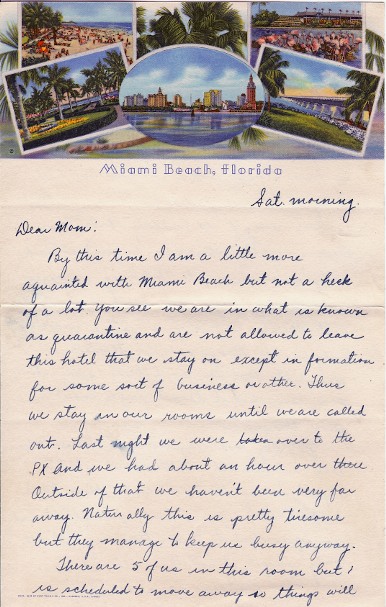 Miami Beach, Florida
Sat. morning.
Dear Mom:
By this time I am a little more
aquainted with Miami Beach but not a heck
of a lot. You see we are in what is known
as quarantine and are not allowed to leave
this hotel that we stay on except in formation
for some sort of business or other. Thus
we stay in our rooms until we are called
out. Last night we were taken over to the
PX and we had about an hour over there
Outside of that we haven't been very far
away. Naturally this is pretty tiresome
but they manage to keep us busy anyway.
There are 5 of us in this room but 1
is scheduled to move away so things will